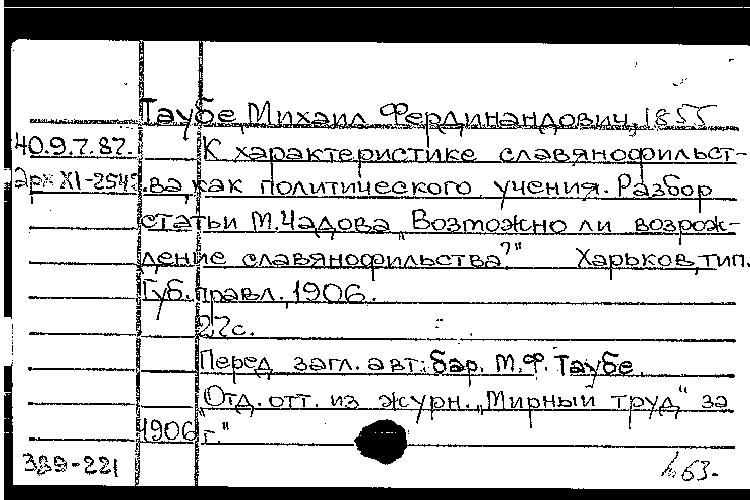 Таубе, Михаил Фердинандович, 1855
40.9.7.82. К характеристике славянофильст-
Арх XI-2542 ва, как политического учения. Разбор
статьи М. Чадова „Возможно ли возрож-
дение славянофильства?" Харьков, тип.
Губ. правл., 1906.
22с.
Перед загл. авт.: бар. М.Ф. Таубе
"Отд. отт. из журн. „Мирный труд" за
1906 г."
389-221 63-